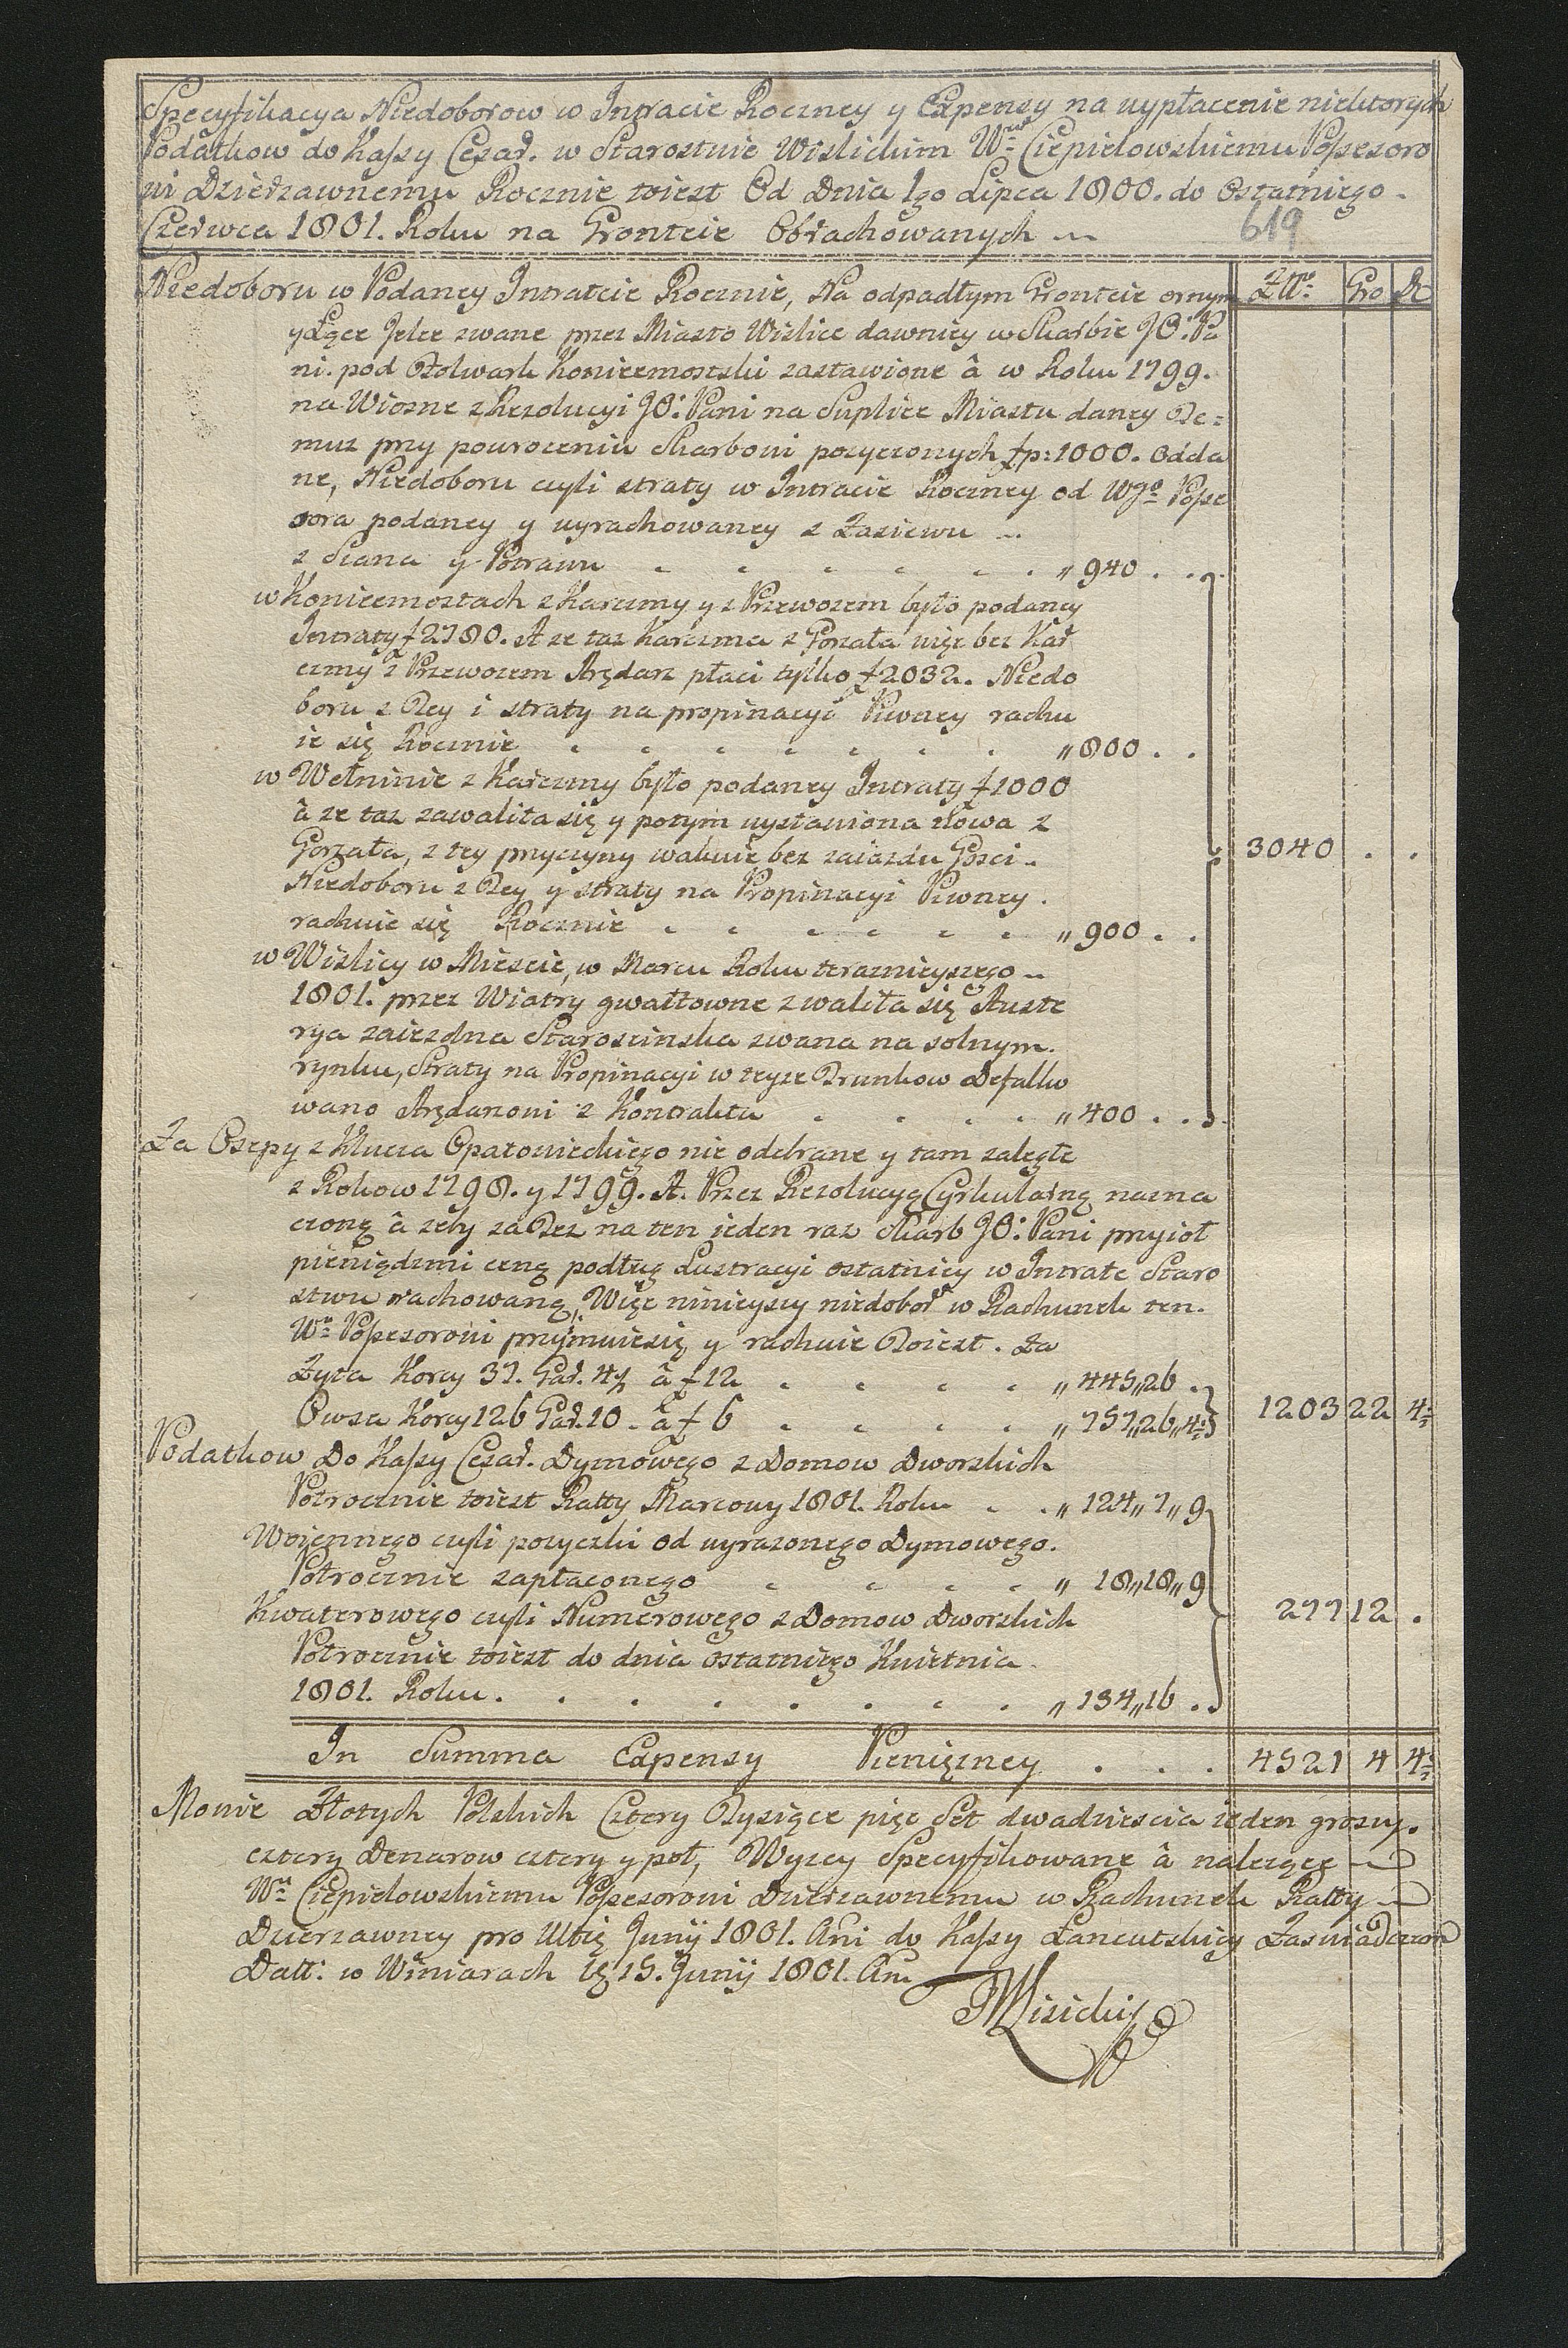 Specyfikacya Niedoborow w Intracie Roczney y Expensy na wypłacenie niektorych
Podatkow do Kassy Cesar. w Starostwie Wislickim Wmu Ciepielowskiemu Possesoro
wi Dzierzawnemu Rocznie toiest Od Dnia 1go Lipca 1800. do Ostatniego
Czerwca 1801. Roku na Grontcie Obrachowanych
619
Niedoboru w Podaney Intratcie Rocznie, Na odpadłym Grontcie ornym
Złłt: Gro D
y Łęce Jelce zwane przez Miasto Wislice dawniey w Skarbie JO: Pa
ni. pod Folwark Koniecmostski zastawione â w Roku 1799.
na Wiosne z Rezolucyi JO: Pani na Suplice Miastu daney Te=
muz przy powroceniu Skarbowi pozyczonych fp: 1000. Odda
ne, Niedoboru czyli straty w Intracie Roczney od Wgo Posse
sora podaney y wyrachowaney z Zasiewu
z Siana y Potrawu " 940 . .
w Koniecmostach z Karczmy y z Przewozem było podaney
Intraty f 2780. A ze taz Karczma z Gorzała więc bez Kar
czmy z Przewozem Arędarz płaci tylko f 2032. Niedo
boru z Tey i straty na propinacyi Piwney rachu
ie się Rocznie " 800 . .
w Wełninie z Karczmy było podaney Intraty f 1000
â ze taz zawaliła się y potym wystawiona nowa z
Gorzała, z tey przyczyny walnie bez zaiazdu Gosci
Niedoboru z Tey y straty na Propinacyi Piwney.
3040 . .
rachuie się Rocznie " 900 . .
w Wislicy w Miescie, w Marcu Roku teraznieyszego
1801. przez Wiatry gwałtowne zwaliła się Auste
rya zaiezdna Staroscinska zwana na solnym.
rynku, Straty na Propinacyi w teyze Trunkow Defalko
wano Arędarzowi z Kontraktu " 400 . .
Za Osepy z Klucza Opatowieckiego nie odebrane y tam zaległe
z Rokow 1798. y 1799. A. Przez Rezolucyą Cyrkularną nazna
czoną â zeby za Tez na ten ieden raz Skarb JO: Pani przyioł
pieniądzmi ceną podług Lustracyi ostatniey w Intrate Staro
stwu rachowaną, Więc ninieyszy niedobor w Rachunek ten.
Wu Possesorowi przyjmuiesię y rachuie Toiest. Za
Zyta Korcy 37. Gar. 4½ â f 12 " 445"26 .
Owsa Korcy 126 Gar. 10 . â f 6 " 757"26"4½
1203 22 4½
Podatkow Do Kassy Cesar. Dymowego z Domow Dworskich
Połrocznie toiest Ratty Marcowy 1801. Roku " 124"7"9
Woiennego czyli pozyczki od wyrazonego Dymowego.
Połrocznie zapłaconego " 18"18"9
277 12 .
Kwaterowego czyli Numerowego z Domow Dworskich
Połrocznie toiest do dnia ostatniego Kwietnia
1801. Roku. " 134"16 .
In Summa Expensy Pieniężney . . . 4521 4 4½
Mowie Złotych Polskich Cztery Tysiące pięc Set dwadziescia ieden groszy.
cztery Denarow cztery y poł, Wyzey Specyfikowane â nalezące
Wu Ciepielowskiemu Possesorowi Dzierzawnemu w Rachunek Ratty
Dzierzawney pro Ultię Junij 1801. Ani do Kassy Łancutskiey Zaswiadczam
Datt: w Winiarach D. 15. Junij 1801. An.